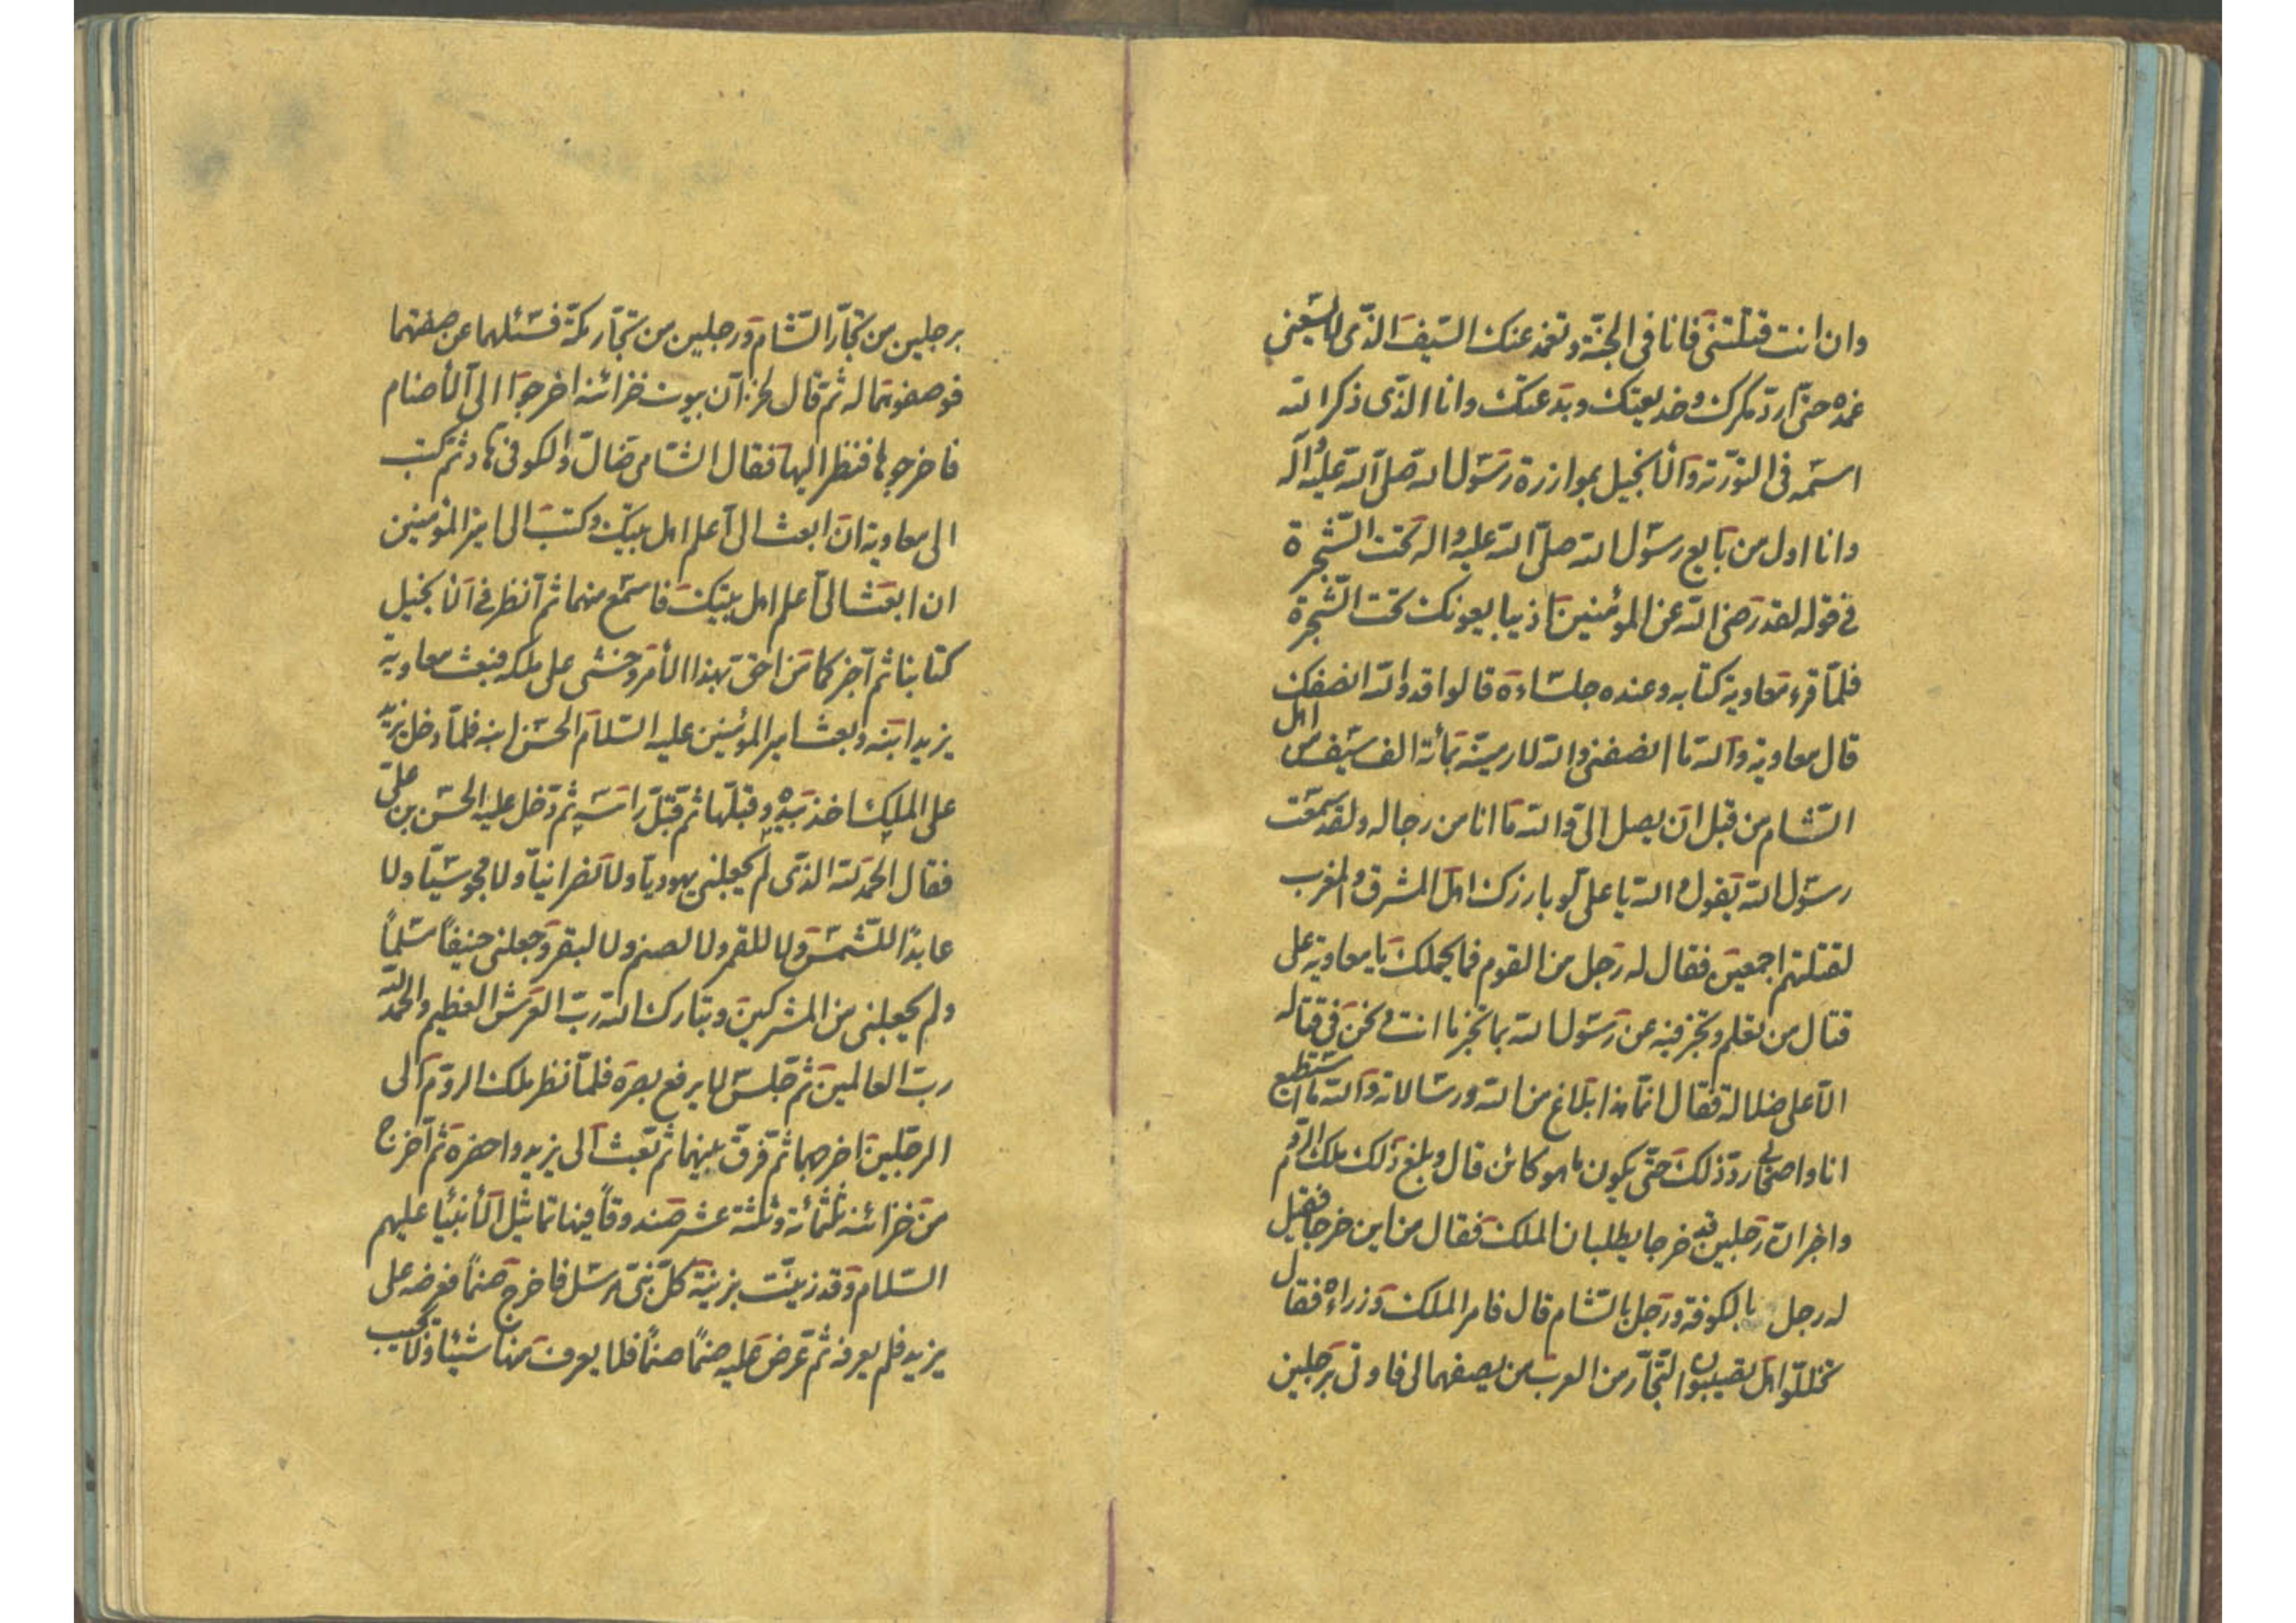 وان انت قتلتنى فانا فى الجنّة و تغمد عنك السّيف الذّى لا يسعنى
غمده حتّى اردّ مكرك و خديعتك و بدعتك وانا الذّى ذكر الله
اسمه فى التورٰية والأنجيل بموازرة رسول الله صلّى الله عليه وآله
وانا اول من بايع رسول الله صلّى الله عليه واله تحت الشّجرة
فى قوله لقد رضى الله عن المؤمنين اذ يبايعونك تحت الشّجرة
فلمّا قرء معاوية كتابه وعنده جلساءه قالوا قد والله انصفك
قال معاوية والله ما انصفنى والله لارمينّه بمأئة الف سيف من اهل
الشّام من قبل ان يصل الىّ والله ما انا من رجاله ولقد سمعت
رسول الله يقول والله يا على لو بارزك اهل المشرق والمغرب
لقتلتهم اجمعين فقال له رجل من القوم فما يحملك يا معاوية على
قتال من تعلم و تخبر فيه عن رسول الله بما تخبر ما انت ونحن فى قتاله
الّا على ضلالة فقال انّما هذا بلاغ من الله ورسالاته والله ما استطيع
انا واصحابى ردّ ذلك حتّى يكون ما هو كائن قال و بلغ ذلك ملك الرّوم
واخبر انّ رجلين قد خرجا يطلبان الملك فقال من اين خرجا فقيل
له رجل بالكوفة ورجل بالشّام قال فامر الملك وزراءه فقال
تخللّوا هل تصيبون التّجّار من العرب من يصفهما لى فاوتى برجلين
برجلين من تجّار الشّام ورجلين من تجّار مكّة فسئلهما عن صفتهما
فوصفوهما له ثمّ قال لخزّان بيوت خزائنه اخرجوا الى الأصنام
فاخرجوها فنظر اليها فقال الشّامى ضالّ والكوفى هاد ثم كتب
الى معاوية ان ابعث الىّ اعلم اهل بيتك وكتب الى امير المؤمنين
ان ابعث الىّ اعلم اهل بيتك فاسمع منهما ثم انظر فى الأنجيل
كتابنا ثم اخبركما من احقّ بهذا الأمر وخشى على ملكه فبعث معاوية
يزيد ابنه وبعث امير المؤمنين عليه السّلام الحسن ابنه فلمّا دخل يزيد
على الملك اخذ بيده وقبّلها ثم قبّل راسه ثم دخل عليه الحسن بن علىّ
فقال الحمد لله الذّى لم يجعلنى يهوديّاً ولا نصرانياً ولا مجوسيّاً ولا
عابداً للشّمس ولا للقمر ولا لصنم ولا لبقر وجعلنى حنيفاً مسلماً
ولم يجعلنى من المشركين وتبارك الله ربّ العرش العظيم والحمد لله
ربّ العالمين ثم جلس لا يرفع بصره فلمّا نظر ملك الروم الى
الرجلين اخرجهما ثم فرّق بينهما ثم بعث الى يزيد واحضره ثم اخرج
من خزائنه ثلثمائة وثلثة عشر صندوقاً فيها تماثيل الأنبياء عليهم
السّلام وقد زيّنت بزينة كلّ نبىّ مرسل فاخرج صنماً فعرضه على
يزيد فلم يعرفه ثم عرض عليه صنماً صنماً فلا يعرف منها شيئاً ولا يجيب